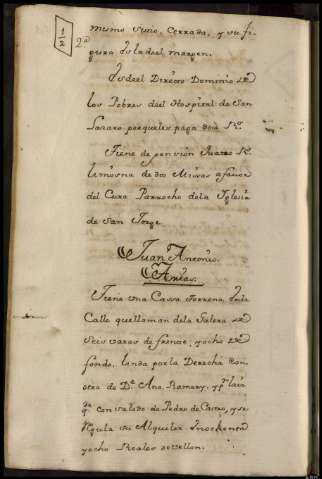 1/2
mismo Sitio, Cerrada, y su fi-
gura es la del margen.
Es del Directo Dominio de
los Pobres del Hospital de San
Lazaro por quales paga Rs.
Tiene de pension quatro Rs.
limosna de dos Misas a favor
del Cura Parrocho de la Iglesia
de San Jorge
Juan Antonio
Arias.
Tiene una Cassa terrena en la
Calle que llaman de la Galera de
Seis varas de frente, y ocho de
fondo, linda por la Derecha con
otra de Da. Ana Romay, y pr. la iz-
da. con de Pedro de Castro, y se
regula su Alquiler
y ocho Reales de vellon.